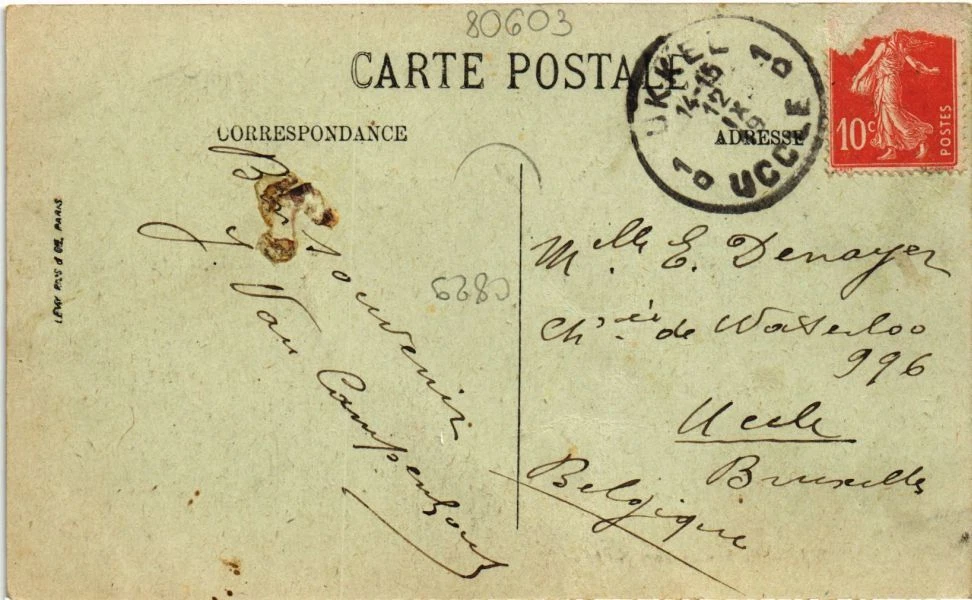 80603
CARTE POSTALE
CORRESPONDANCE
ADRESSE
UKKEL
14-15
12
UCCLE
1D
1D
10c
POSTES
LEVY FILS & Cie, PARIS
Bon souvenir
J Van Campenhout
Mlle E. Denayer
Chsée de Waterloo
996
Uccle
Bruxelles
Belgique